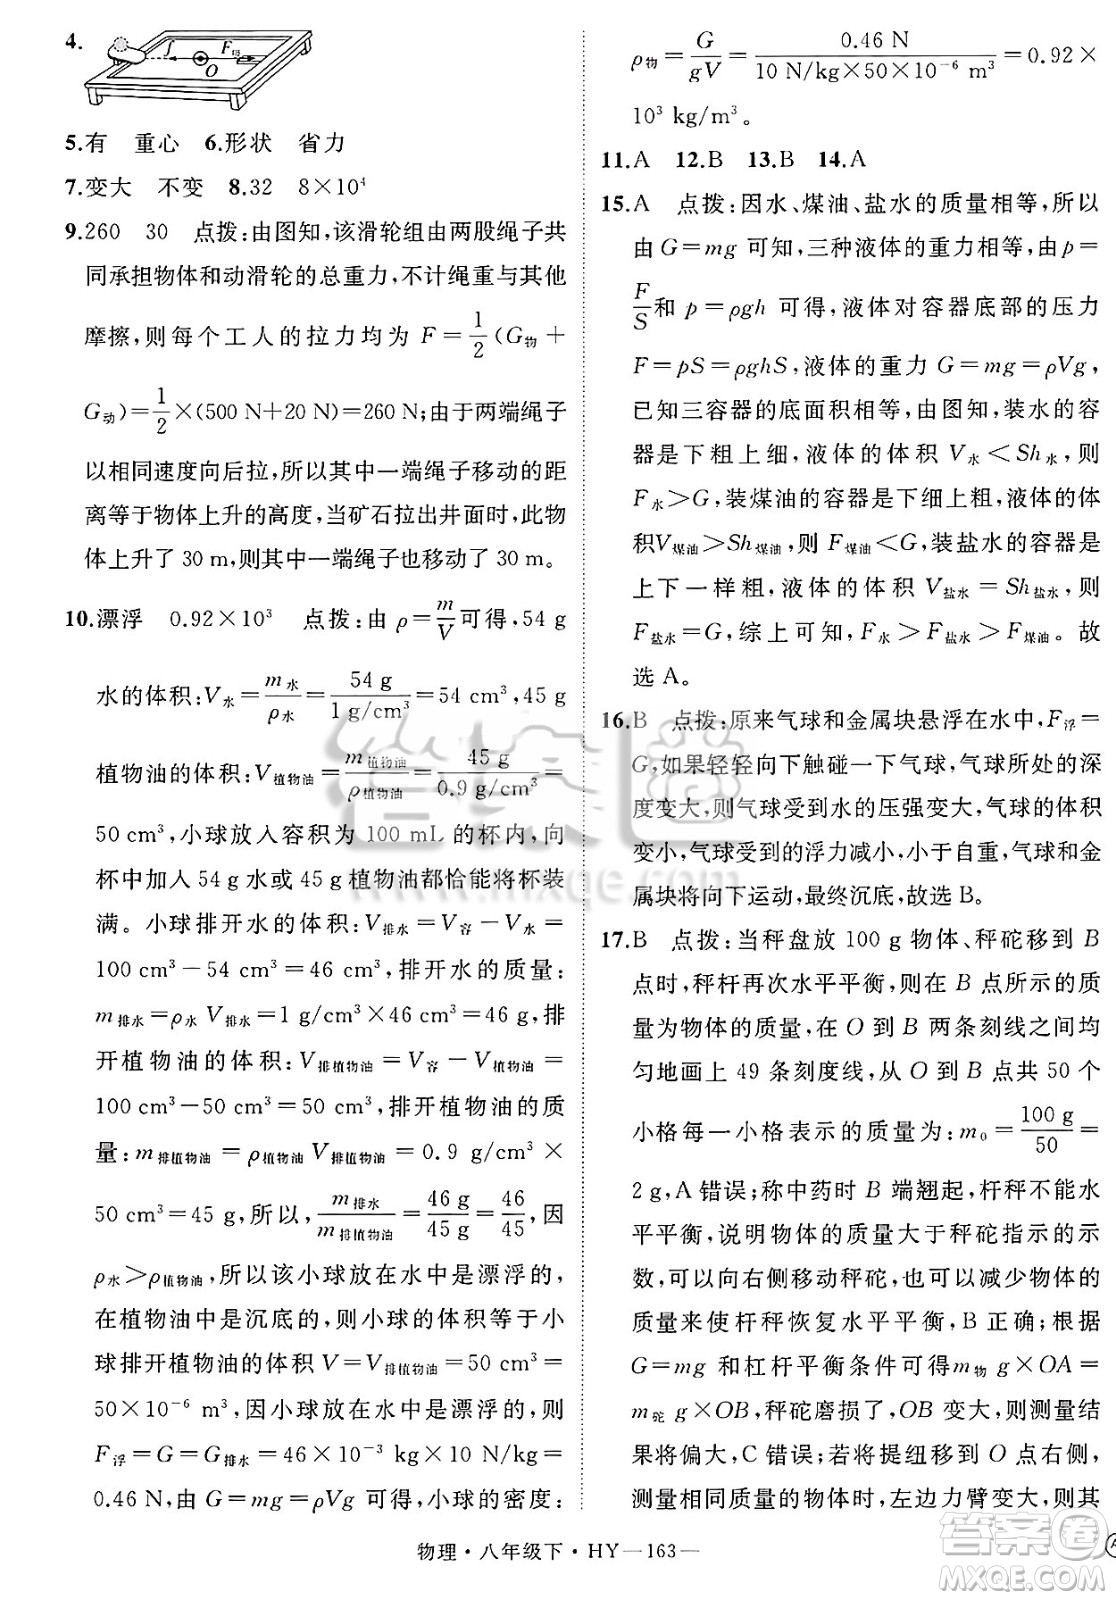 4.
f F 拉
O
5.有 重心 6.形状 省力
7.变大 不变 8.32 8×10⁴
9.260 30 点拨:由图知,该滑轮组由两股绳子共
同承担物体和动滑轮的总重力,不计绳重与其他
摩擦,则每个工人的拉力均为 F=1/2(G物+
G动)=1/2×(500 N+20 N)=260 N;由于两端绳子
以相同速度向后拉,所以其中一端绳子移动的距
离等于物体上升的高度,当矿石拉出井面时,此物
体上升了 30 m,则其中一端绳子也移动了 30 m。
10.漂浮 0.92×10³ 点拨:由 ρ=m/V可得,54 g
水的体积:V水=m水/ρ水=54 g/1 g/cm³=54 cm³,45 g
植物油的体积:V植物油=m植物油/ρ植物油=45 g/0.9 g/cm³=
50 cm³,小球放入容积为 100 mL 的杯内,向
杯中加入 54 g 水或 45 g 植物油都恰能将杯装
满。小球排开水的体积:V排水=V容-V水=
100 cm³-54 cm³=46 cm³,排开水的质量:
m排水=ρ水 V排水=1 g/cm³×46 cm³=46 g,排
开植物油的体积:V排植物油=V容-V植物油=
100 cm³-50 cm³=50 cm³,排开植物油的质
量:m排植物油=ρ植物油 V排植物油=0.9 g/cm³×
50 cm³=45 g,所以,m排水/m排植物油=46 g/45 g=46/45,因
ρ水>ρ植物油,所以该小球放在水中是漂浮的,
在植物油中是沉底的,则小球的体积等于小
球排开植物油的体积 V=V排植物油=50 cm³=
50×10⁻⁶ m³,因小球放在水中是漂浮的,则
F浮=G=G排水=46×10⁻³ kg×10 N/kg=
0.46 N,由 G=mg=ρVg 可得,小球的密度:
ρ物=G/gV=0.46 N/10 N/kg×50×10⁻⁶ m³=0.92×
10³ kg/m³。
11.A 12.B 13.B 14.A
15.A 点拨:因水、煤油、盐水的质量相等,所以
由 G=mg 可知,三种液体的重力相等,由 p=
F/S和 p=ρgh 可得,液体对容器底部的压力
F=pS=ρghS,液体的重力 G=mg=ρVg,
已知三容器的底面积相等,由图知,装水的容
器是下粗上细,液体的体积 V水<Sh水,则
F水>G,装煤油的容器是下细上粗,液体的体
积V煤油>Sh煤油,则 F煤油<G,装盐水的容器是
上下一样粗,液体的体积 V盐水=Sh盐水,则
F盐水=G,综上可知,F水>F盐水>F煤油。故
选 A。
16.B 点拨:原来气球和金属块悬浮在水中,F浮=
G,如果轻轻向下触碰一下气球,气球所处的深
度变大,则气球受到水的压强变大,气球的体积
变小,气球受到的浮力减小,小于自重,气球和金
属块将向下运动,最终沉底,故选 B。
17.B 点拨:当秤盘放 100 g 物体、秤砣移到 B
点时,秤杆再次水平平衡,则在 B 点所示的质
量为物体的质量,在 O 到 B 两条刻线之间均
匀地画上 49 条刻度线,从 O 到 B 点共 50 个
小格每一小格表示的质量为:m₀=100 g/50=
2 g,A 错误;称中药时 B 端翘起,杆秤不能水
平平衡,说明物体的质量大于秤砣指示的示
数,可以向右侧移动秤砣,也可以减少物体的
质量使杆秤恢复水平平衡,B 正确;根据
G=mg 和杠杆平衡条件可得m物 g×OA=
m砣 g×OB,秤砣磨损了,OB 变大,则测量结
果将偏大,C 错误;若将提纽移到 O 点右侧,
测量相同质量的物体时,左边力臂变大,则其
物理·八年级下·HY—163—
答案圈
www.mxqe.com
答案圈
MXQE.COM